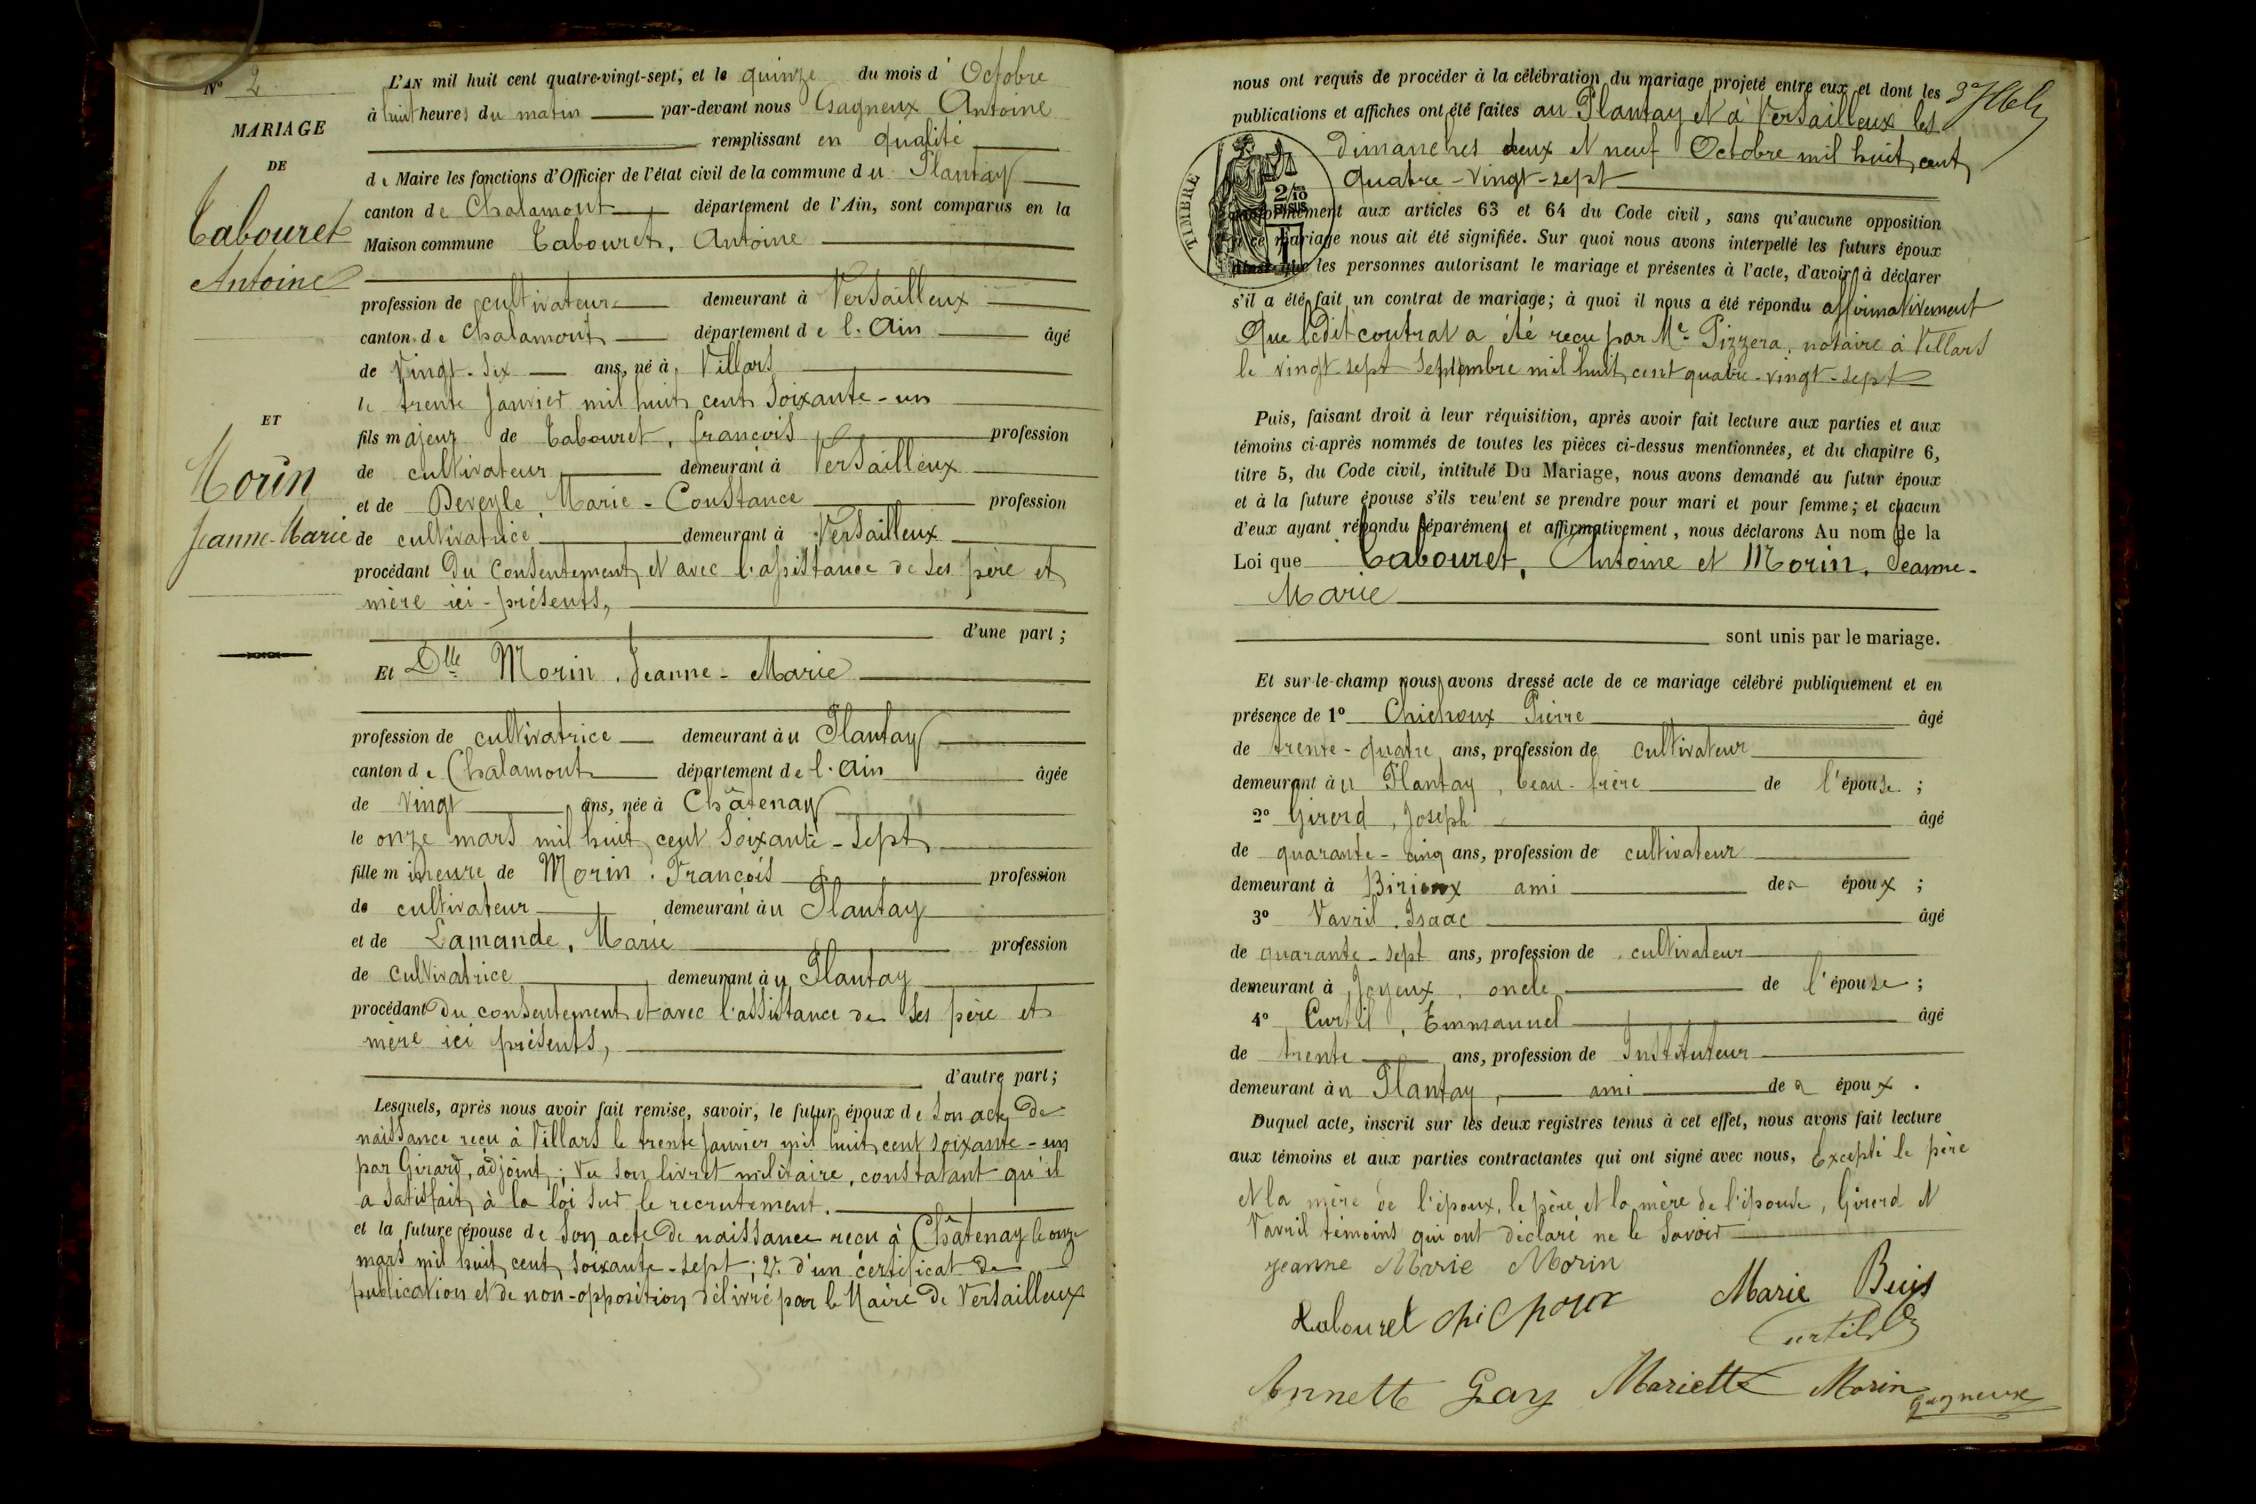 N° 2
MARIAGE
DE
Tabouret
Antoine
ET
Morin
Jeanne-Marie
L'AN mil huit cent quatre-vingt-sept, et le quinze du mois d' Octobre
à huit heures du matin par-devant nous Gagneux Antoine
remplissant en qualité
de Maire les fonctions d'Officier de l'état civil de la commune du Plantay
canton de Chalamont département de l'Ain, sont comparus en la
Maison commune Tabouret, Antoine
profession de cultivateur demeurant à Versailleux
canton de Chalamont département de l'Ain âgé
de Vingt-six ans, né à Villars
le trente Janvier mil huit cent soixante-un
fils majeur de Tabouret, françois profession
de cultivateur demeurant à Versailleux
et de Deveyle, Marie-Constance profession
de cultivatrice demeurant à Versailleux
procédant Du consentement et avec l'assistance de ses père et
mère ici-présents,
d'une part ;
Et Dlle Morin, Jeanne-Marie
profession de cultivatrice demeurant àu Plantay
canton de Chalamont département de l'Ain âgée
de Vingt ans, née à Châtenay
le onze mars mil huit cent soixante-sept
fille mineure de Morin, François profession
de cultivateur demeurant àu Plantay
et de Lamande, Marie profession
de cultivatrice demeurant àu Plantay
procédant du consentement et avec l'assistance de ses père et
mère ici présents,
d'autre part ;
Lesquels, après nous avoir fait remise, savoir, le futur époux de son acte De
naissance reçu à Villars le trente Janvier mil huit cent soixante-un
par Girard, adjoint ; Vu son livret militaire, constatant qu'il
a satisfait à la loi sur le recrutement.
et la future épouse de son acte De naissance reçu à Châtenay le onze
mars mil huit cent soixante-sept ; 2°. d'un certificat de
publication et de non-opposition délivré par le Maire de Versailleux
nous ont requis de procéder à la célébration du mariage projeté entre eux et dont les
publications et affiches ont été faites au Plantay et à Versailleux les
Dimanches deux et neuf Octobre mil huit cent
quatre-vingt-sept
TIMBRE
2/10
EN SUS
conformément aux articles 63 et 64 du Code civil, sans qu'aucune opposition
à ce mariage nous ait été signifiée. Sur quoi nous avons interpellé les futurs époux
ainsi que les personnes autorisant le mariage et présentes à l'acte, d'avoir à déclarer
s'il a été fait un contrat de mariage ; à quoi il nous a été répondu affirmativement
Que ledit contrat a été reçu par Me Pizzera, notaire à Villars
le vingt-sept Septembre mil huit cent quatre-vingt-sept
Puis, faisant droit à leur réquisition, après avoir fait lecture aux parties et aux
témoins ci-après nommés de toutes les pièces ci-dessus mentionnées, et du chapitre 6,
titre 5, du Code civil, intitulé Du Mariage, nous avons demandé au futur époux
et à la future épouse s'ils veulent se prendre pour mari et pour femme ; et chacun
d'eux ayant répondu séparément et affirmativement, nous déclarons Au nom de la
Loi que Tabouret, Antoine et Morin, Jeanne-
Marie
sont unis par le mariage.
Et sur-le-champ nous avons dressé acte de ce mariage célébré publiquement et en
présence de 1° Chichoux Pierre âgé
de trente-quatre ans, profession de cultivateur
demeurant àu Plantay, beau-frère de l'épouse ;
2° Girerd, Joseph âgé
de quarante-cinq ans, profession de cultivateur
demeurant à Birieux ami de époux ;
3° Vavril, Isaac âgé
de quarante-sept ans, profession de cultivateur
demeurant à Joyeux, oncle de l'épouse ;
4° Curtil, Emmanuel âgé
de trente ans, profession de Instituteur
demeurant àu Plantay, ami de époux.
Duquel acte, inscrit sur les deux registres tenus à cet effet, nous avons fait lecture
aux témoins et aux parties contractantes qui ont signé avec nous, Excepté le père
et la mère de l'époux, le père et la mère de l'épouse, Girerd et
Vavril témoins qui ont déclaré ne le savoir
jeanne Marie Morin
Tabouret chichoux Marie Buis
Curtil
Annette Gay Mariette Morin gagneux